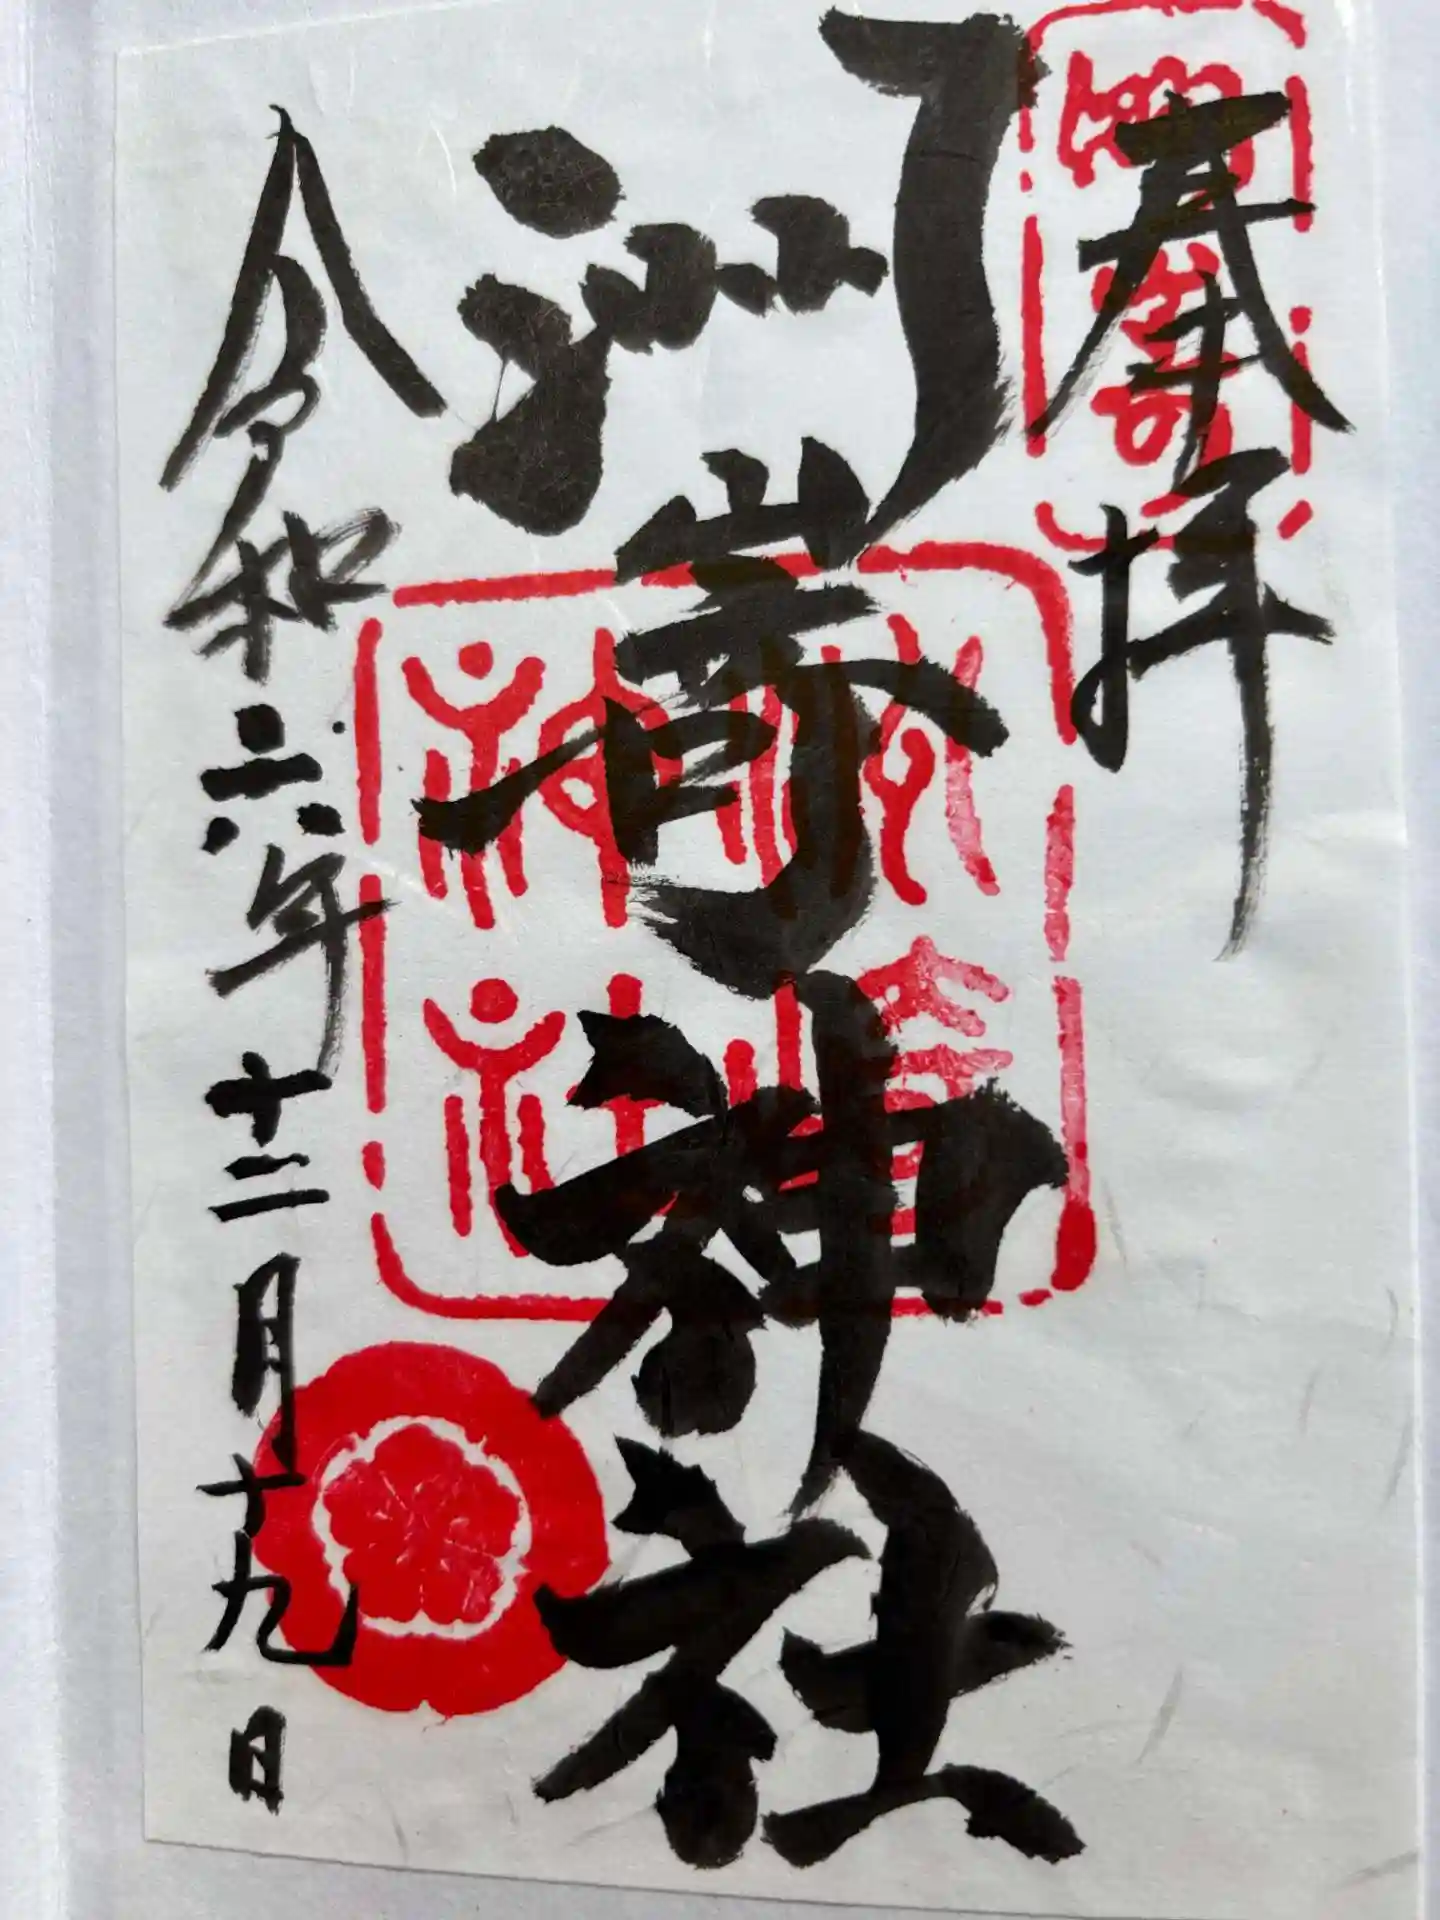 奉拝
洲嵜神社
令和六年十二月十九日
神社